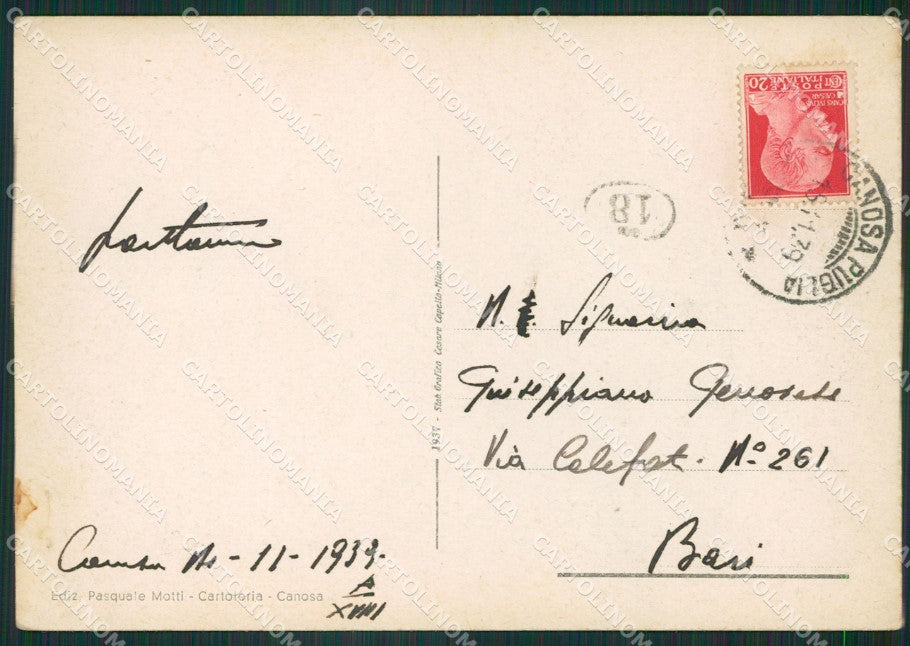 CENT 20
POSTE ITALIANE
CANOSA PUGLIA
11.39
18
N. Signorina
Giuseppiano Genovese
Via Calefat. Nº 261
Bari
Canosa -11-1939-
XVIII
Ediz. Pasquale Motti - Cartoleria - Canosa
1937 - Stab Grafico Cesare Capello-Milano
CARTOLINOMANIA